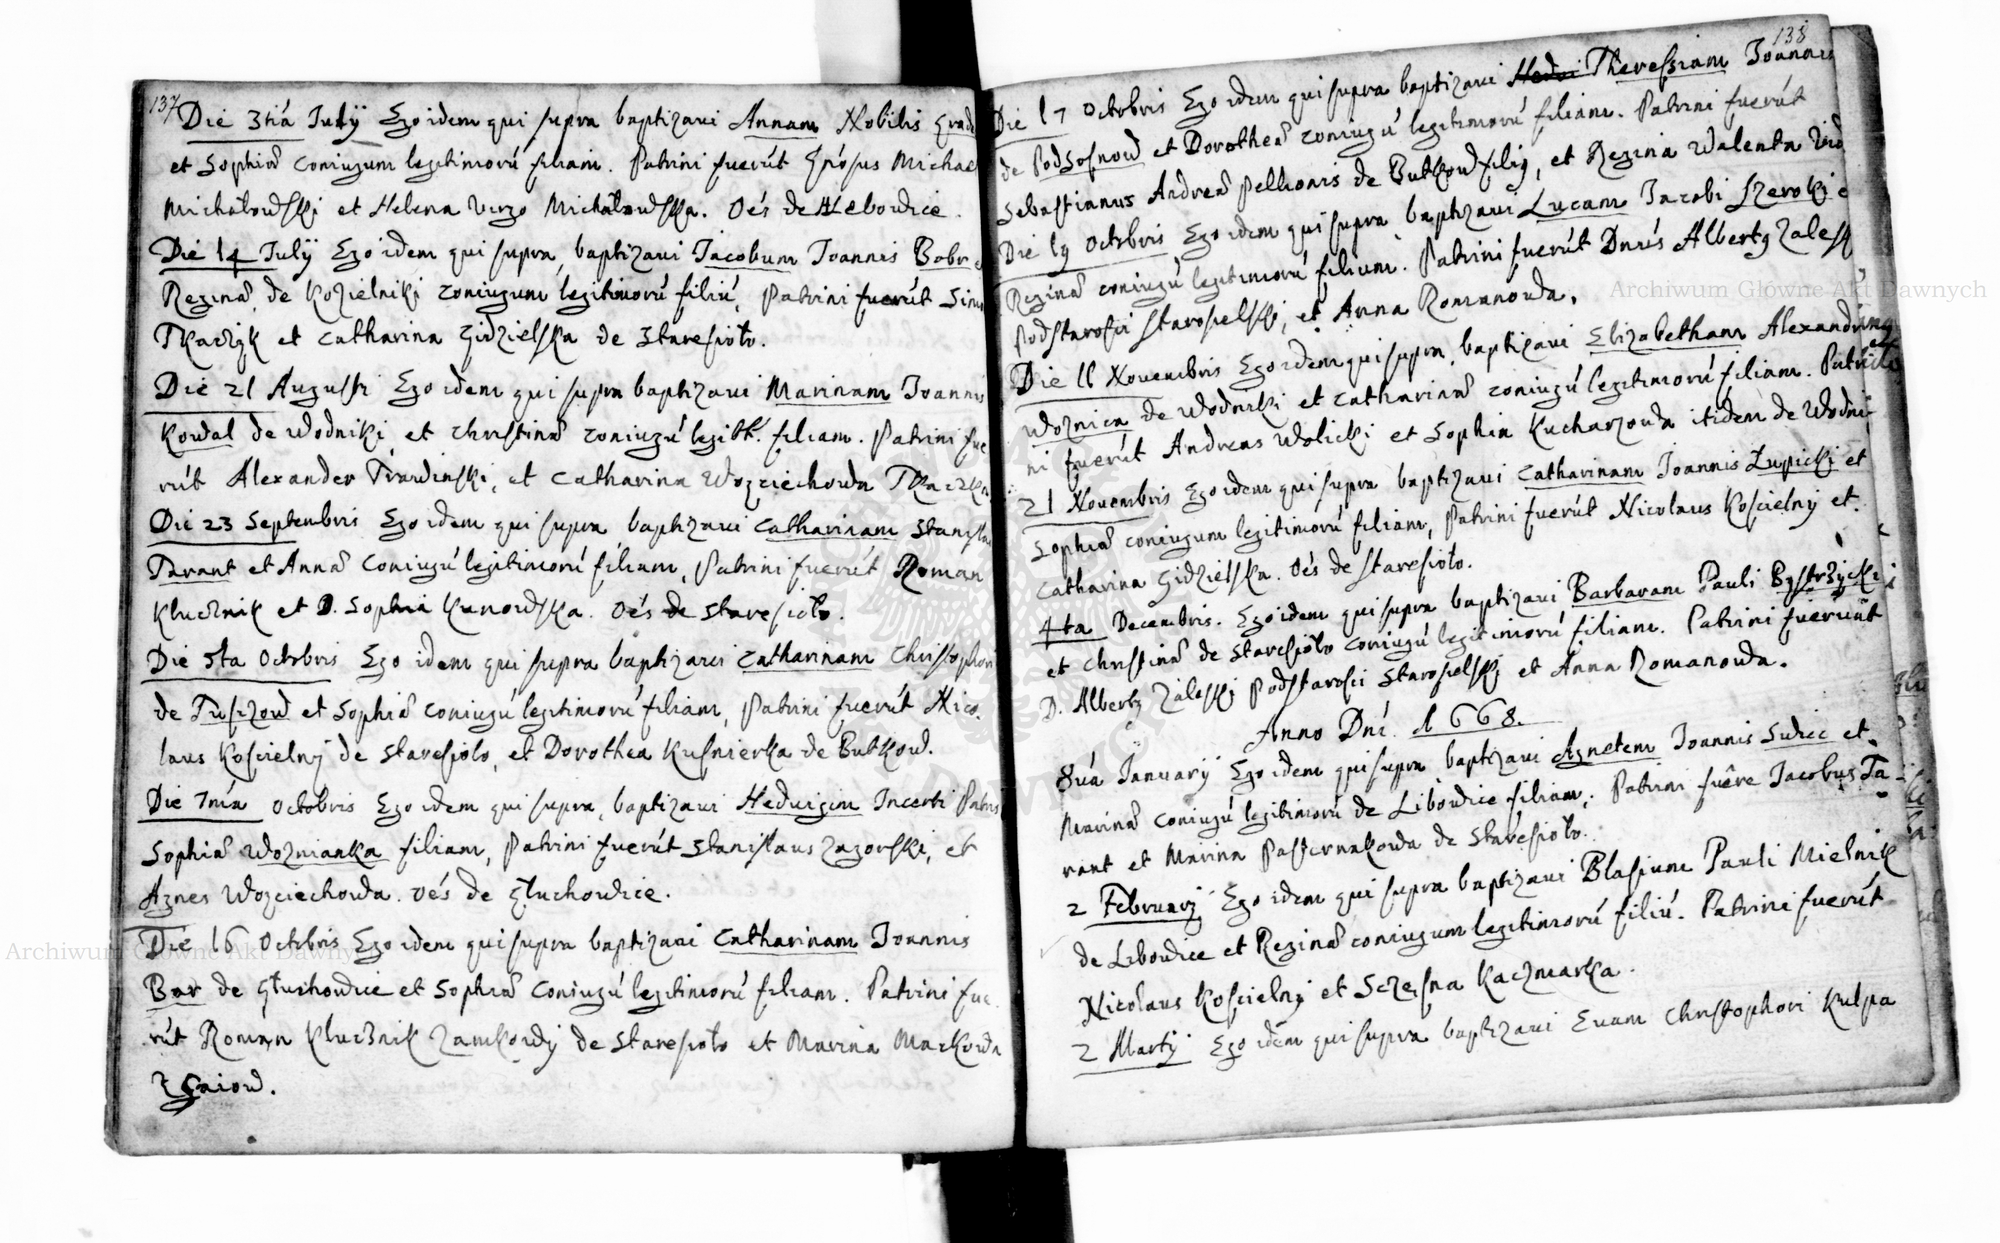 137
Die 3tiá Julÿ Ego idem qui supra baptizaui Annam Nobilis
et Sophiæ coniugum legitimorú filiam. Patrini fuerút Gnósus Michael
Michałowski et Helena Virgo Michałowska. Oés de Hlebowice.
Die 14 Julÿ Ego idem qui supra, baptizaui Jacobum Joannis
Reginæ de Kozielniki coniugum legitimorú filiú, Patrini fuerút
Tkaczyk et Catharina Gidzielska de Staresioło.
Die 21 Augusti Ego idem qui supra baptizaui Marinam Joannis
Kowal de Wodniki et Christinæ coniugú legitt. filiam. Patrini fue
rút Alexander Twardinski, et Catharina Woyciechowa
Die 23 Septembris Ego idem qui supra baptizaui Catharinam
Tarant et Annæ coniugú legitimorú filiam, Patrini fuerút Roman
Klucznik et D. Sophia Kunowska. Oés de Staresioło.
Die 5ta Octobris Ego idem qui supra baptizaui Catharinam Christophori
de Tuszow et Sophiæ coniugú legitimorú filiam, Patrini fuerút Nico
laus Kościelny de Staresioło, et Dorothea Kusnierka de Butkow.
Die 7mâ Octobris Ego idem qui supra, baptizaui Heduigim Incerti Patris
Sophiæ Woznianka filiam, Patrini fuerút Stanislaus Zagorski, et
Agnes Woyciechowa. Oés de Głuchowice.
Die 16 Octobris Ego idem qui supra baptizaui Catharinam Joannis
Bar de Głuchowice et Sophiæ coniugú legitimorú filiam. Patrini fue
rút Roman Klucznik Zamkowÿ de Staresioło et Marina Markowa
z Gaiow.
138
Die 17 Octobris Ego idem qui supra baptizaui Theressiam Joannis
de Podsosnow et Dorotheæ coniugú legitimorú filiam. Patrini fuerút
Sebastianus Andreæ Pellionis de Butkow filiÿ, et Regina Walenta
Die 19 Octobris Ego idem qui supra baptizaui Lucam Jacobi
Reginæ coniugú legitimorú filium. Patrini fuerút Dnús Albertÿ
Podstarosci Starosielski, et Anna Romanowa.
Die 11 Nouembris Ego idem qui supra, baptizaui Elizabetham
Woznica de Wodniki et Catharinæ coniugú legitimorú filiam. Patri
ni fuerút Andreas Wolicki et Sophia Kucharzowa itidem de
21 Nouembris Ego idem qui supra baptizaui Catharinam Joannis Łupicki et
Sophiæ coniugum legitimorú filiam, Patrini fuerút Nicolaus Kościelny et
Catharina Gidzielska. Oés de Staresioło.
4ta Decembris. Ego idem qui supra baptizaui Barbaram Pauli Bystrzycki
et Christinæ de Staresioło coniugú legitimorú filiam. Patrini fueruút
D. Albertÿ Zaleski Podstarosci Starosielski et Anna Romanowa.
Anno Dní. 1668.
8uá Januarÿ Ego idem qui supra baptizaui Agnetem Joannis Sudiec et
Marinæ coniugú legitimorú de Libowice filiam, Patrini fuêre Jacobus Ta
rant et Marina Pasternakowa de Staresioło.
2 Februarÿ Ego idem qui supra baptizaui Blasium Pauli Mielnik
de Libowice et Reginæ coniugum legitimorú filiú. Patrini fuerút
Nicolaus Kościelnÿ et Sczęsna Kaczmarka.
2 Martÿ Ego idem qui supra baptizaui Euam Christophori Kulpa
Archiwum Główne Akt Dawnych
Archiwum Główne Akt Dawnych